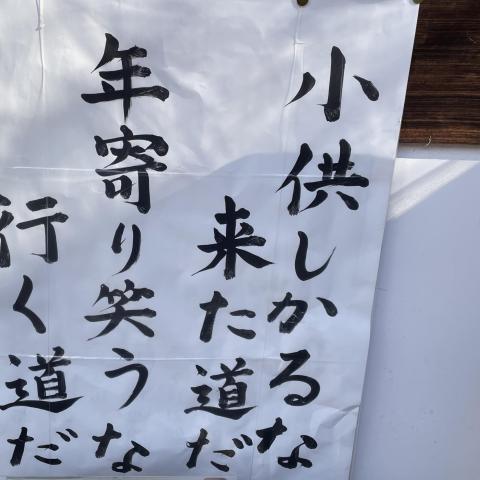 小供しかるな
来た道だ
年寄り笑うな
行く道だ